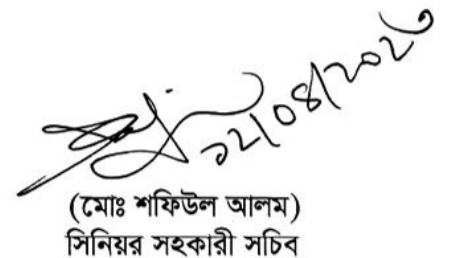 ১২/০৪/২০২৩
(মোঃ শফিউল আলম)
সিনিয়র সহকারী সচিব